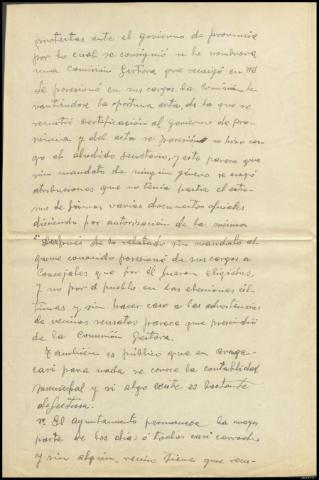 protestas ante el gobierno de provincia
por lo cual se consiguió se le nombrara
una Comisión Gestora que recayó en
Se posesionó en sus cargos la Comisión le-
vantándose la oportuna acta, de la que se
remitió certificación al Gobierno de Pro-
vincia y del acta de posesión se hizo car-
go el aludido Secretario, y este parece que
sin mandato de ningún género se arrogó
atribuciones que no tenía hasta el extre-
mo de firmar varios documentos oficiales
diciendo por autorización de la misma
Después de lo relatado sin mandato al-
guno cuando posesionó de sus cargos a
Concejales que por él fueran elegidos
y no por el pueblo en las elecciones úl-
timas y sin hacer caso a las advertencias
de vecinos sensatos parece que prescindió
de la Comisión Gestora.
También es público que en
casi para nada se conoce la contabilidad
municipal y si algo existe es bastante
defectuosa.
El ayuntamiento permanece la mayor
parte de los días ó todos casi cerrado
y sin algún vecino tiene que